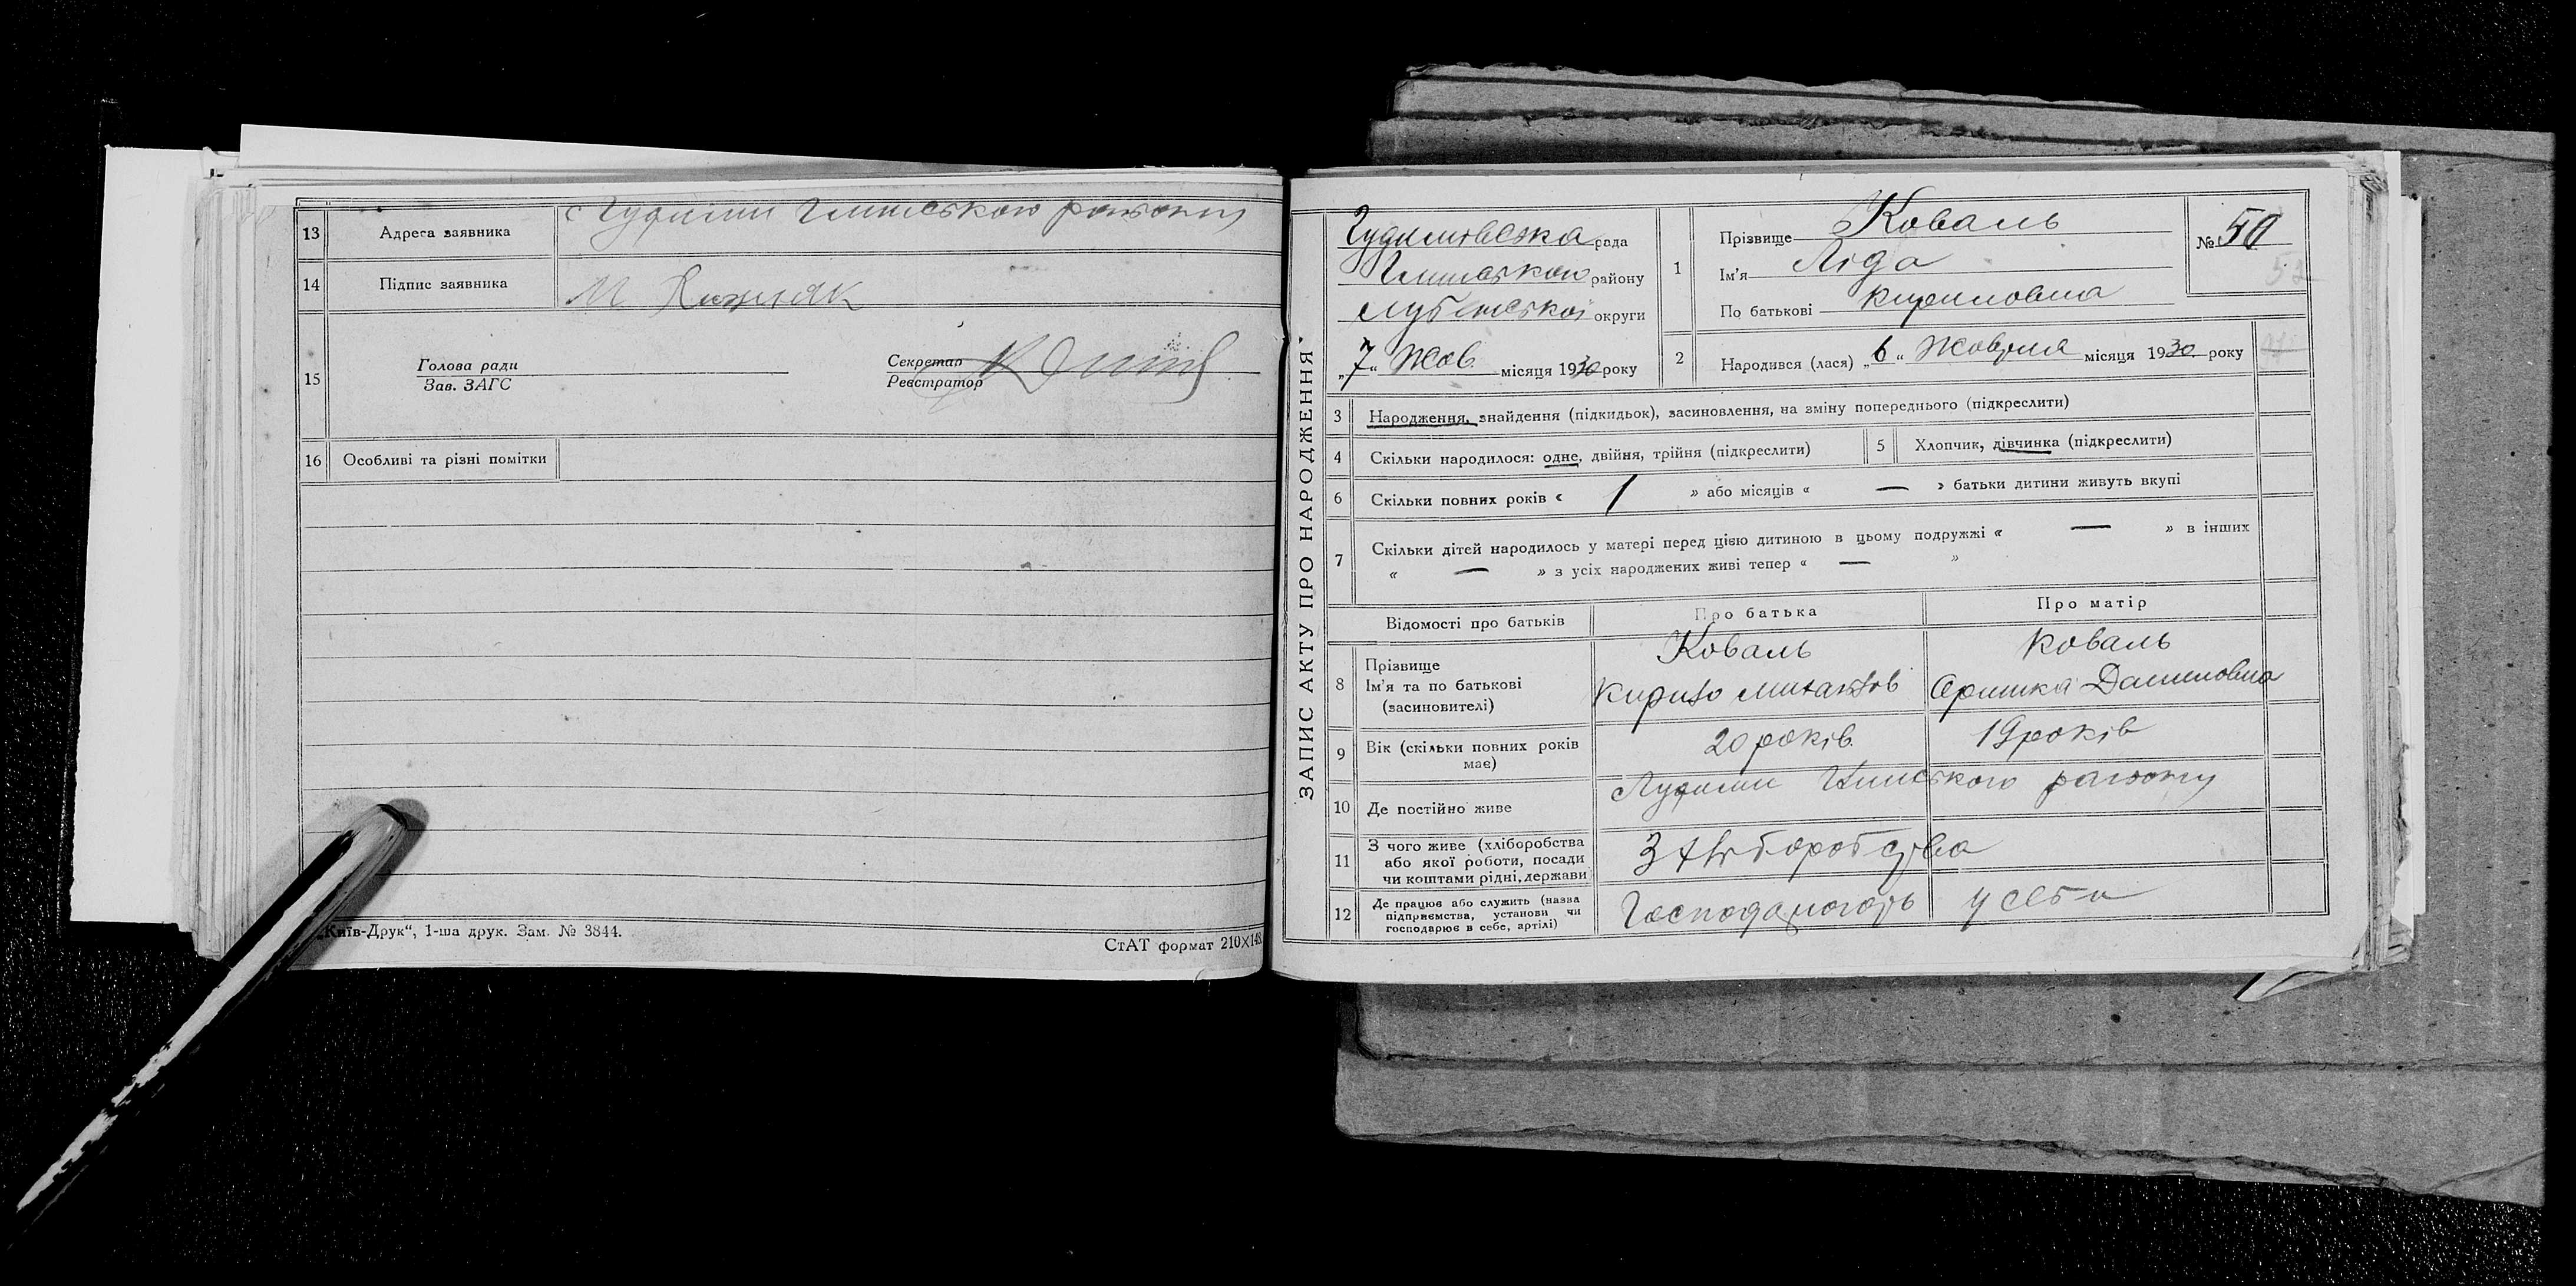 13 Адреса заявника районy
14 Підпис заявника М
15 Голова ради
Зав. ЗАГС
Секретар
Реєстратор
16 Особливі та різні помітки
„Київ-Друк“, 1-ша друк. Зам. № 3844.
СтАТ формат 210×148
ЗАПИС АКТУ ПРО НАРОДЖЕННЯ
рада
району
Лубенської округи
„7“ Жов. місяця 1930 року
1 Прізвище Коваль
Ім'я Ліда
По батькові Кириловна
№ 50
52
2 Народився (лася) „6“ Жовтня місяця 1930 року
3 Народження, знайдення (підкидьок), засиновлення, на зміну попереднього (підкреслити)
4 Скільки народилося: одне, двійня, трійня (підкреслити)
5 Хлопчик, дівчинка (підкреслити)
6 Скільки повних років « 1 » або місяців « — » батьки дитини живуть вкупі
7 Скільки дітей народилось у матері перед цією дитиною в цьому подружжі « — » в інших
« — » з усіх народжених живі тепер « — »
Відомості про батьків Про батька Про матір
8 Прізвище
Ім'я та по батькові
(засиновителі)
Коваль
Коваль
Даниловна
9 Вік (скільки повних років
має)
20 років.
19 років
10 Де постійно живе району
11 З чого живе (хліборобства
або якої роботи, посади
чи коштами рідні, держави
З хліборобства
12 Де працює або служить (назва
підприємства, установи чи
господарює в себе, артілі)
у себе